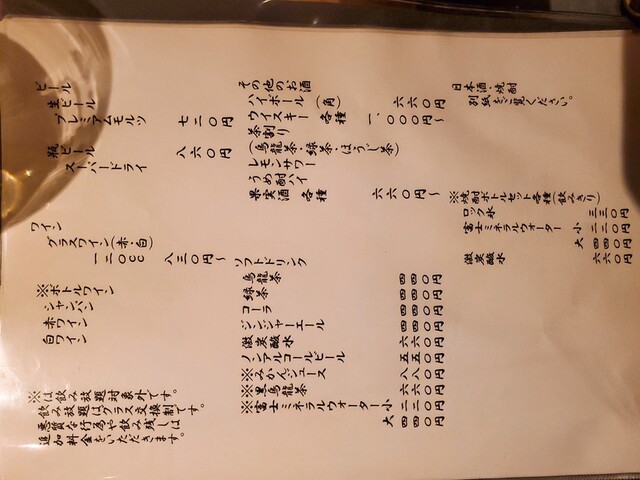 ビール
生ビール
プレミアムモルツ 七二〇円
瓶ビール
スーパードライ 八六〇円
ワイン
グラスワイン(赤・白)
一二〇cc 八三〇円〜
※ボトルワイン
シャンパン
赤ワイン
白ワイン
※は飲み放題対象外です。
飲み放題はグラス交換制です。
悪質な行為や飲み残しは
追加料金をいただきます。
その他のお酒
ハイボール(角) 六六〇円
ウイスキー 各種 一、〇〇〇円〜
茶割り
(烏龍茶・緑茶・ほうじ茶)
レモンサワー
うめ酎ハイ
果実酒 各種 六六〇円〜
ソフトドリンク
烏龍茶 四四〇円
緑茶 四四〇円
コーラ 四四〇円
ジンジャーエール 四四〇円
微炭酸水 六六〇円
ノンアルコールビール 五五〇円
※みかんジュース 八八〇円
※黒烏龍茶 六六〇円
※富士ミネラルウォーター 小 二二〇円
大 四四〇円
日本酒・焼酎
別紙をご覧ください。
※焼酎ボトルセット各種(飲みきり)
ロック氷 三三〇円
富士ミネラルウォーター 小 二二〇円
大 四四〇円
微炭酸水 六六〇円